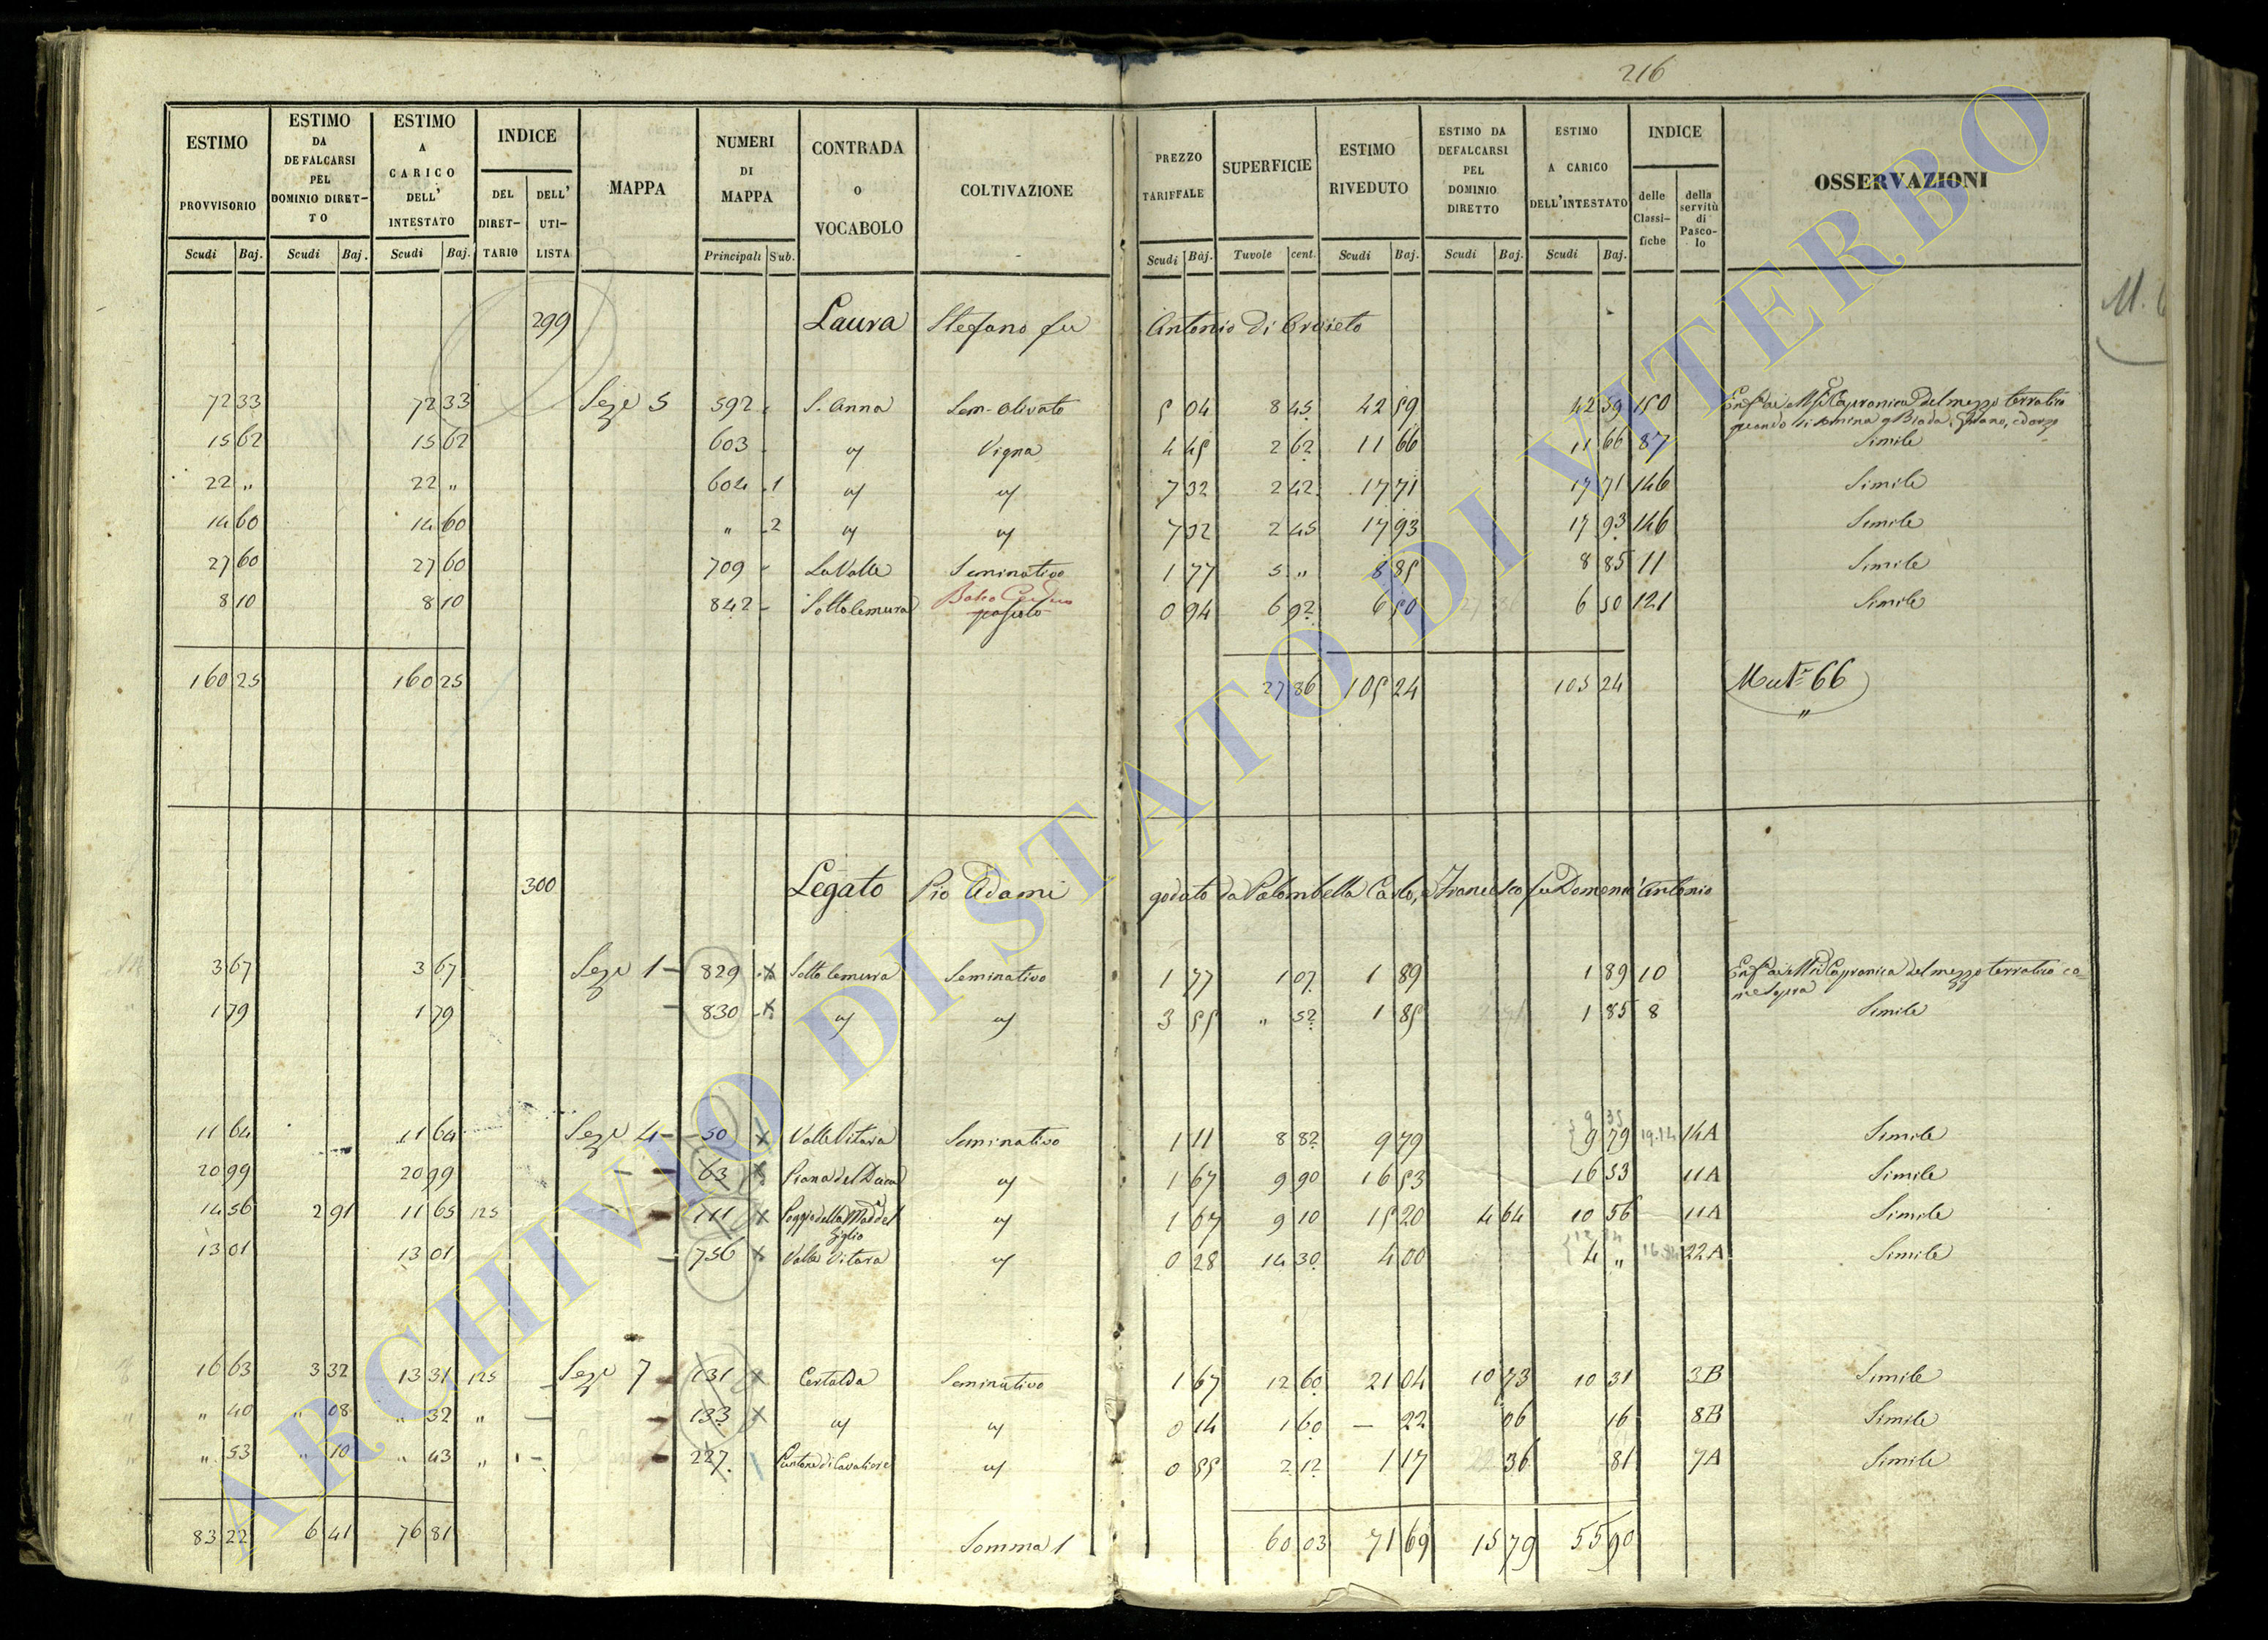 216
ESTIMO PROVVISORIO | ESTIMO DA DEFALCARSI PEL DOMINIO DIRET-TO | ESTIMO A CARICO DELL' INTESTATO | INDICE | MAPPA | NUMERI DI MAPPA | CONTRADA O VOCABOLO | COLTIVAZIONE | PREZZO TARIFFALE | SUPERFICIE | ESTIMO RIVEDUTO | ESTIMO DA DEFALCARSI PEL DOMINIO DIRETTO | ESTIMO A CARICO DELL'INTESTATO | INDICE | OSSERVAZIONI
DEL DIRET-TARIO | DELL' UTI-LISTA | delle Classi-fiche | della servitù di Pasco-lo
Scudi | Baj. | Scudi | Baj. | Scudi | Baj. | Principali | Sub. | Scudi | Baj. | Tavole | cent. | Scudi | Baj. | Scudi | Baj. | Scudi | Baj.
299 Laura Stefano fu Antonio di Orvieto
M.
72 33 | 72 33 | Sez.e 5 | 592 | S. Anna | Sem. olivato | 5 04 | 8 45 | 42 59 | 42 59 | 150 | Capranica del mezzo terratico
quando si semina Biada, Grano, ed orzo
15 62 | 15 62 | 603 | " | Vigna | 4 45 | 2 62 | 11 66 | 11 66 | 87 | Simile
22 " | 22 " | 604 1 | " | " | 7 32 | 2 42 | 17 71 | 17 71 | 146 | Simile
14 60 | 14 60 | " 2 | " | " | 7 32 | 2 45 | 17 93 | 17 93 | 146 | Simile
27 60 | 27 60 | 709 | La Valle | Seminativo | 1 77 | 5 " | 8 85 | 8 85 | 11 | Simile
8 10 | 8 10 | 842 | Sotto le mura | Bosco Ceduo pascolo | 0 94 | 6 92 | 6 50 | 6 50 | 121 | Simile
160 25 | 160 25 | 27 86 | 105 24 | 105 24 | Mut.e 66
300 Legato Pio Adami goduto da Palombella Carlo, e Francesco fu Domenic'Antonio
3 67 | 3 67 | Sez.e 1 | 829 x | Sotto le mura | Seminativo | 1 77 | 1 07 | 1 89 | 1 89 | 10 | Capranica del mezzo terratico co-
me sopra
1 79 | 1 79 | 830 x | " | " | 3 55 | " 52 | 1 85 | 1 85 | 8 | Simile
11 64 | 11 64 | Sez.e 4 | 50 x | Valle Vitara | Seminativo | 1 11 | 8 82 | 9 79 | 9 35 | 9 79 | 19.14 | 14A | Simile
20 99 | 20 99 | 63 x | Piana del | " | 1 67 | 9 90 | 16 53 | 16 53 | 11A | Simile
14 56 | 2 91 | 11 65 | 125 | 111 x | Poggio della Mad.a del Giglio | " | 1 67 | 9 10 | 15 20 | 4 64 | 10 56 | 11A | Simile
13 01 | 13 01 | 756 x | Valle Vitara | " | 0 28 | 14 30 | 4 00 | 4 " | 22A | Simile
16 63 | 3 32 | 13 31 | 125 | Sez.e 7 | 131 x | Certalda | Seminativo | 1 67 | 12 60 | 21 04 | 10 73 | 10 31 | 3B | Simile
" 40 | " 08 | " 32 | " | 133 x | " | " | 0 14 | 1 60 | — 22 | 06 | 16 | 8B | Simile
" 53 | " 10 | " 43 | " | 227 | Puntone di Cavaliere | " | 0 55 | 2 12 | 1 17 | 36 | 81 | 7A | Simile
83 22 | 6 41 | 76 81 | Somma 1 | 60 03 | 71 69 | 15 79 | 55 90
ARCHIVIO DI STATO DI VITERBO